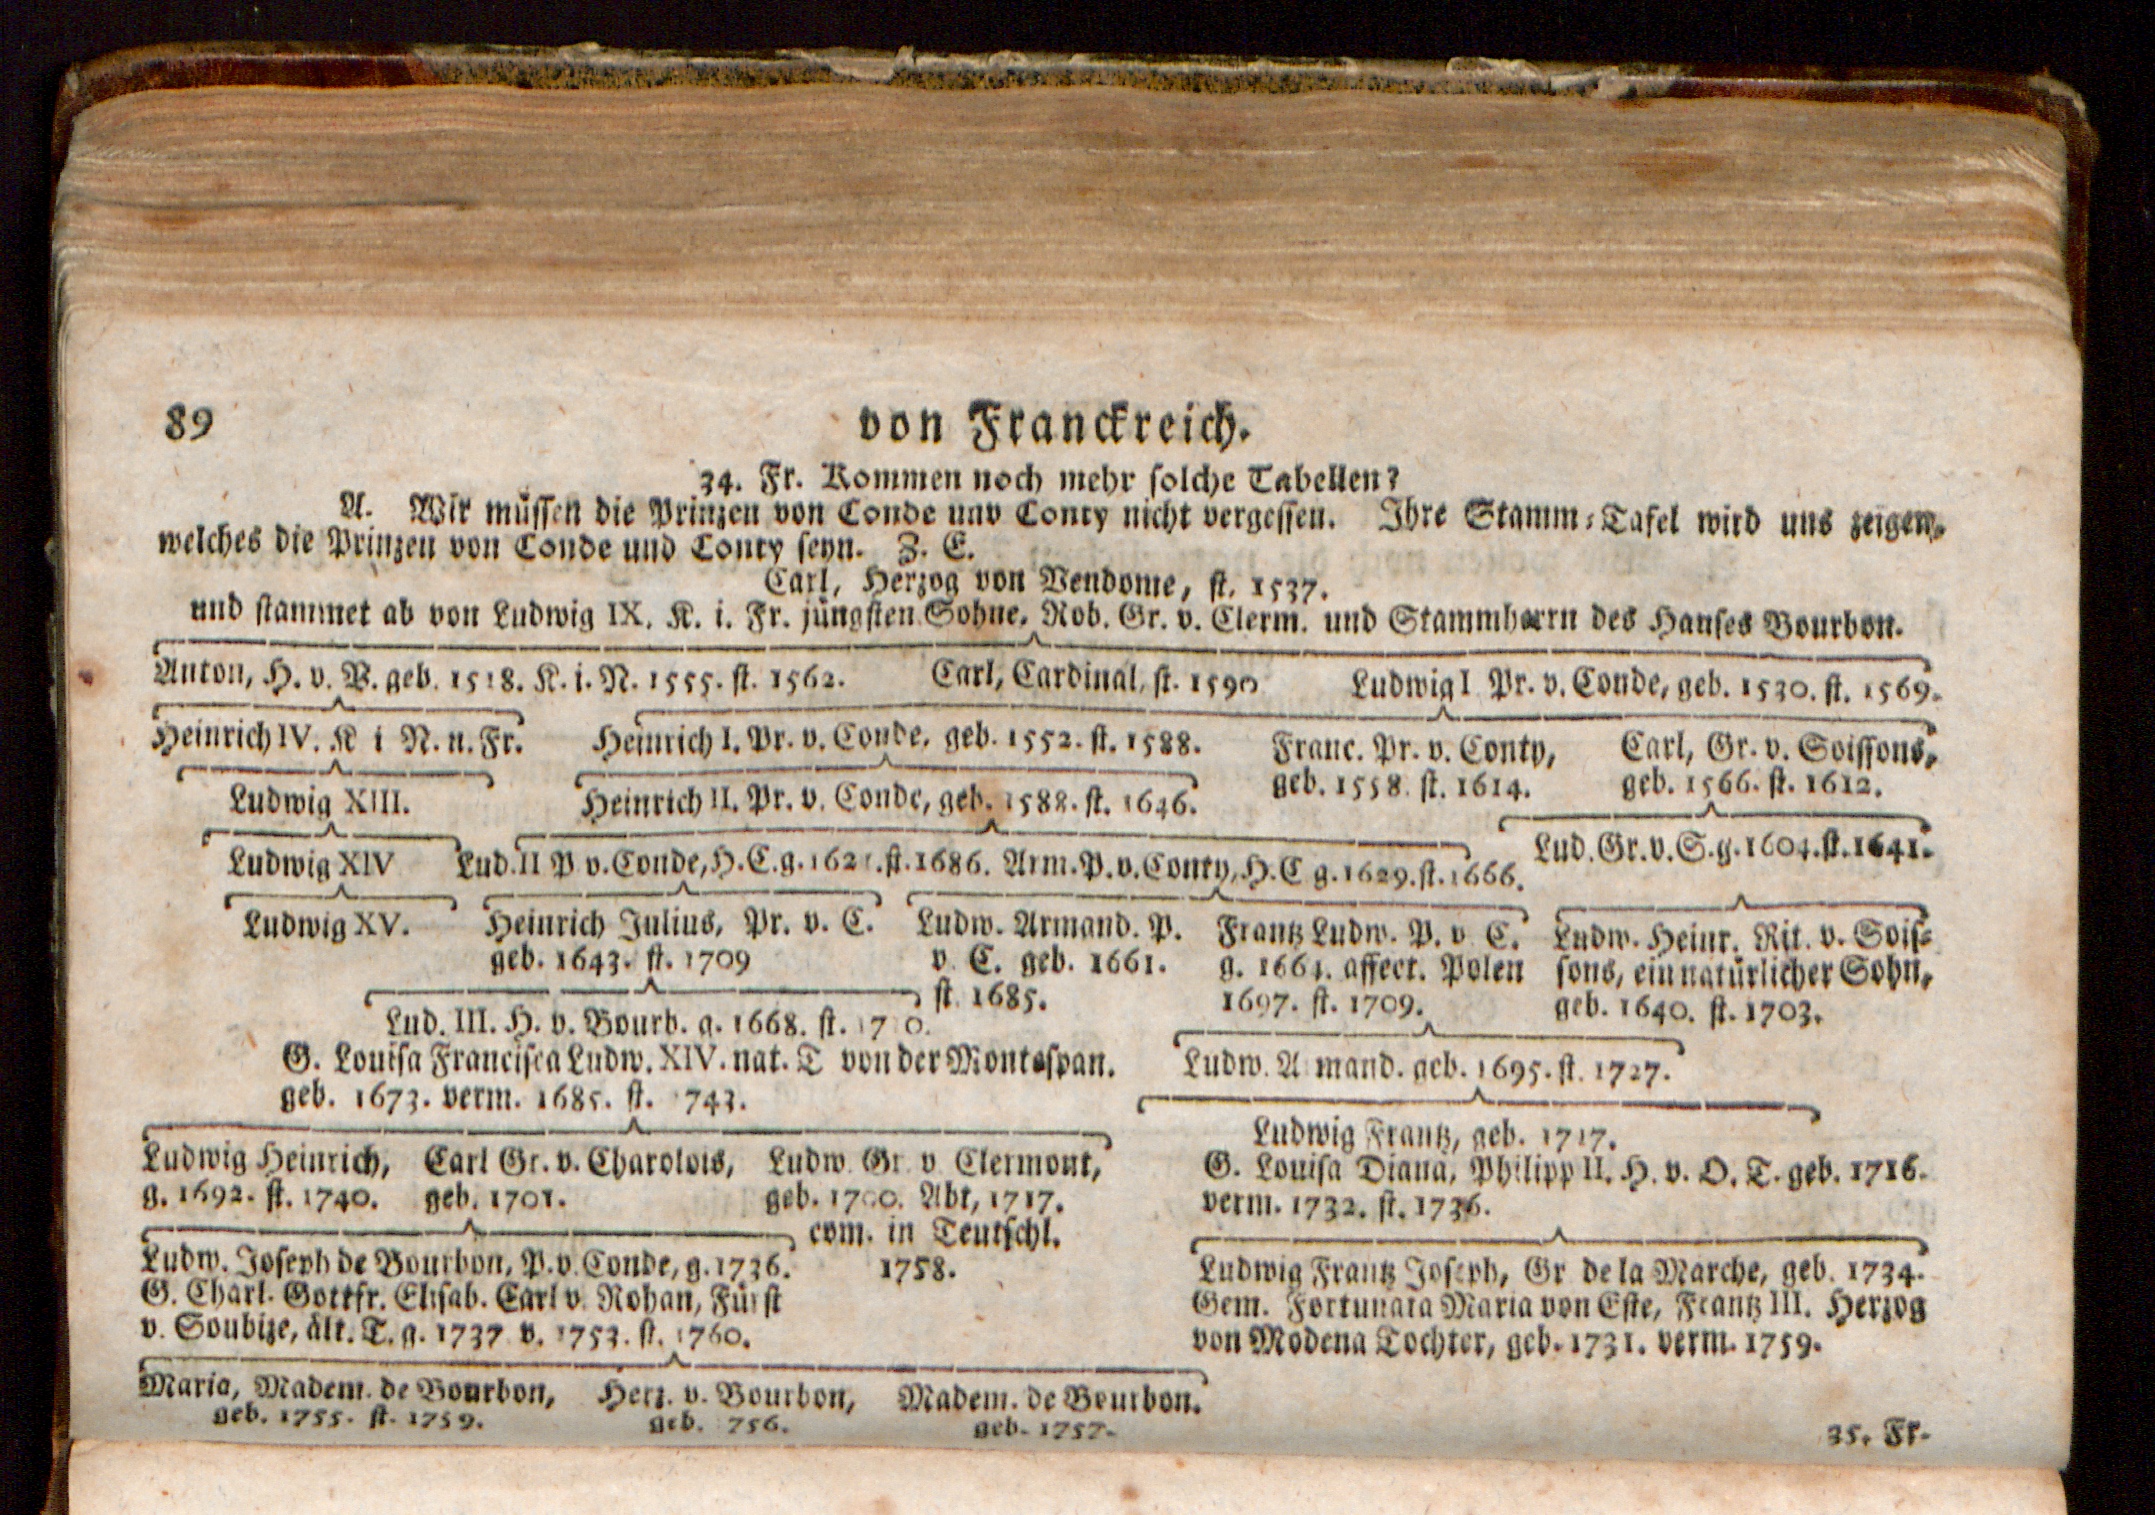 89
von Franckreich.
34. Fr. Kommen noch mehr solche Tabellen?
A. Wir müssen die Prinzen von Conde unv Conty nicht vergessen. Ihre Stamm-Tafel wird uns zeigen,
welches die Prinzen von Conde und Conty seyn. Z. E.
Carl, Herzog von Vendome, st. 1537.
und stammet ab von Ludwig IX. K. i. Fr. jüngsten Sohne, Rob. Gr. v. Clerm. und Stammherrn des Hauses Bourbon.
Anton, H. v. V. geb. 1518. K. i. N. 1555. st. 1562. Carl, Cardinal, st. 1590 Ludwig I Pr. v. Conde, geb. 1530. st. 1569.
Heinrich IV. K i N. n. Fr. Heinrich I. Pr. v. Conde, geb. 1552. st. 1588. Franc. Pr. v. Conty, Carl, Gr. v. Soissons,
geb. 1558. st. 1614. geb. 1566. st. 1612.
Ludwig XIII. Heinrich II. Pr. v. Conde, geb. 1588. st. 1646.
Ludwig XIV Lud. II P v. Conde, H. E. g. 1621. st. 1686. Arm. P. v. Conty, H. C g. 1629. st. 1666. Lud. Gr. v. S. g. 1604. st. 1641.
Ludwig XV. Heinrich Julius, Pr. v. C. Ludw. Armand. P. Frantz Ludw. P. v C. Ludw. Heinr. Rit. v. Sois-
geb. 1643. st. 1709 v. C. geb. 1661. g. 1664. affect. Polen sons, ein natürlicher Sohn,
st. 1685. 1697. st. 1709. geb. 1640. st. 1703.
Lud. III. H. v. Bourb. g. 1668. st. 17 0.
G. Louisa Francisca Ludw. XIV. nat. T von der Montespan. Ludw. A mand. geb. 1695. st. 1727.
geb. 1673. verm. 1685. st. 743.
Ludwig Frantz, geb. 1717.
Ludwig Heinrich, Carl Gr. v. Charolois, Ludw. Gr v Clermont, G. Louisa Diana, Philipp II. H. v. O. T. geb. 1716.
g. 1692. st. 1740. geb. 1701. geb. 1700. Abt, 1717. verm. 1732. st. 1736.
com. in Teutschl.
1758.
Ludw. Joseph de Bourbon, P. v. Conde, g. 1736. Ludwig Frantz Joseph, Gr de la Marche, geb. 1734.
G. Charl. Gottfr. Elisab. Carl v. Rohan, Fürst Gem. Fortunata Maria von Este, Frantz III. Herzog
v. Soubize, ält. T. g. 1737 v. 1753. st. 1760. von Modena Tochter, geb. 1731. verm. 1759.
Maria, Madem. de Bourbon, Herz. v. Bourbon, Madem. de Bourbon.
geb. 1755. st. 1759. geb. 756. geb. 1757.
35. Fr.